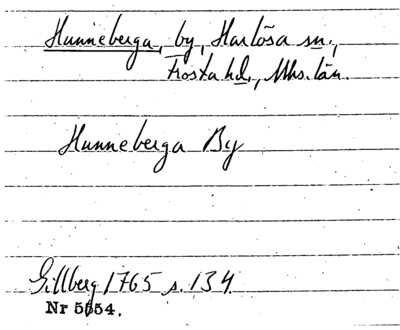 Hunneberga, by, Harlösa sn.,
Frosta hd., Mhs. län.
Hunneberga By
Gillberg 1765 s. 134.
Nr 5654.